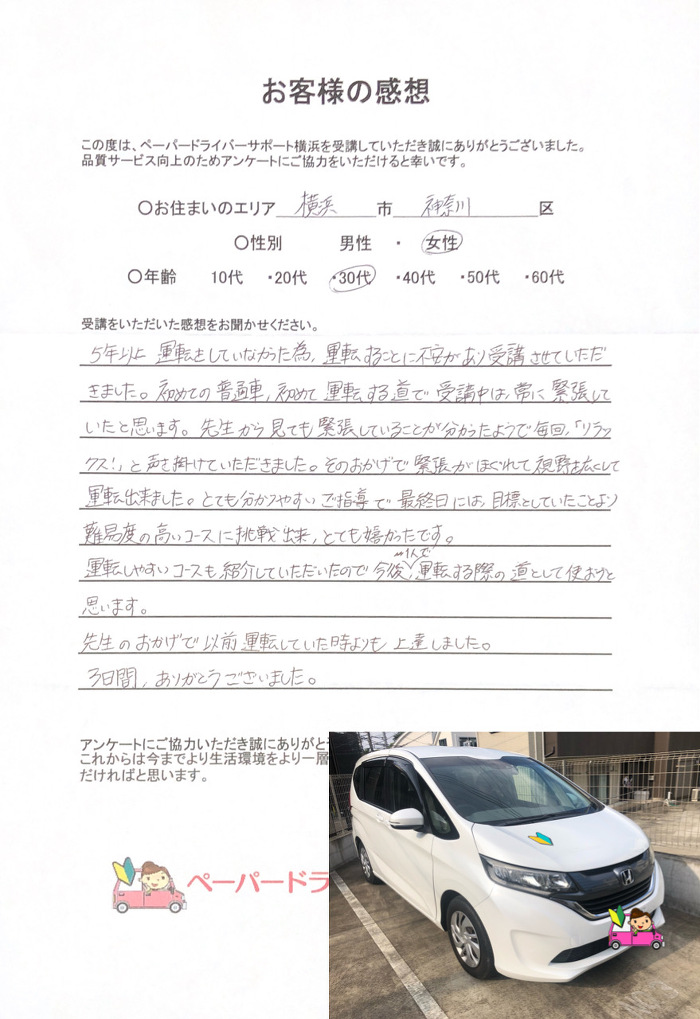 お客様の感想
この度は、ペーパードライバーサポート横浜を受講していただき誠にありがとうございました。
品質サービス向上のためアンケートにご協力をいただけると幸いです。
〇お住まいのエリア 横浜 市 神奈川 区
〇性別 男性 ・ 女性
〇年齢 10代 ・20代 ・30代 ・40代 ・50代 ・60代
受講をいただいた感想をお聞かせください。
5年以上 運転をしていなかった為、運転することに不安があり受講させていただ
きました。初めての普通車、初めて運転する道で受講中は、常に緊張して
いたと思います。先生から見ても緊張していることが分かったようで毎回、「リラッ
クス!」と声を掛けていただきました。そのおかげで緊張がほぐれて視野を広くして
運転出来ました。とても分かりやすいご指導で最終日には、目標としていたことより
難易度の高いコースに挑戦出来、とても嬉しかったです。
運転しやすいコースも紹介していただいたので今後、1人で運転する際の道として使おうと
思います。
先生のおかげで以前運転していた時よりも上達しました。
3日間、ありがとうございました。
アンケートにご協力いただき誠にありがと
これからは今までより生活環境をより一層
だければと思います。
ペーパードラ